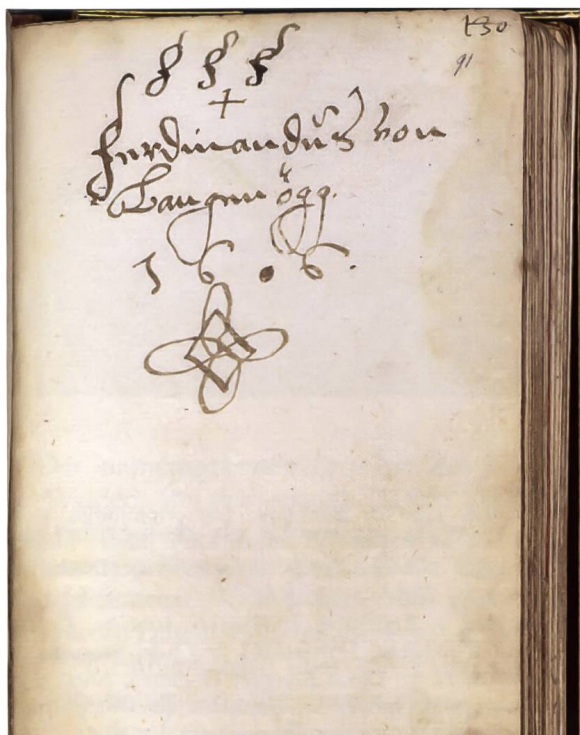 130
91
F F F
+
Ferdinandus von
Langenögg.
1606.